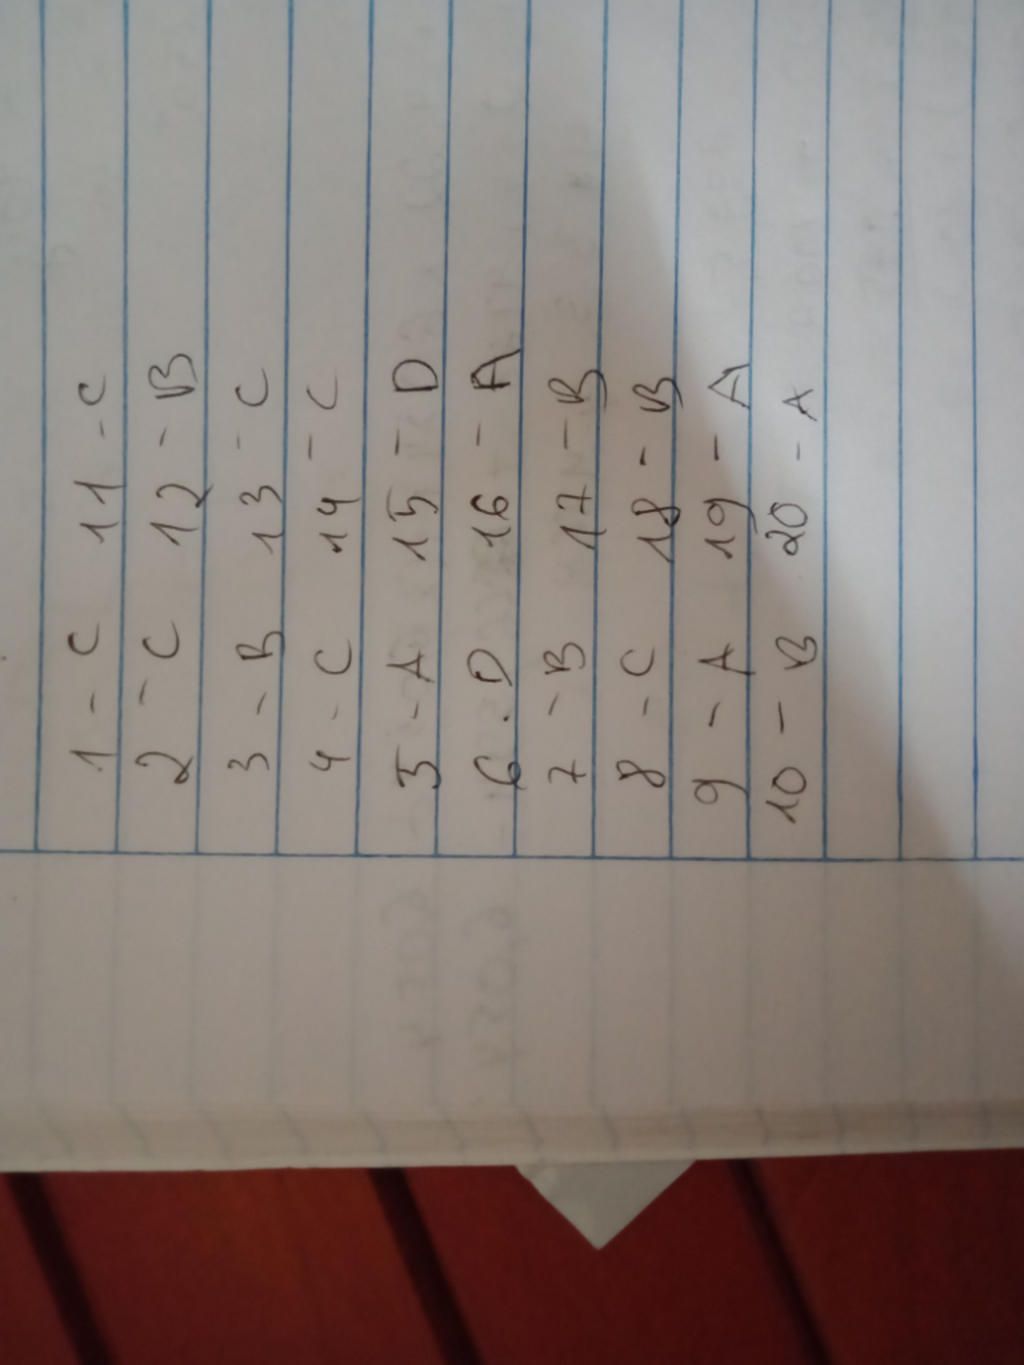 1 - C 11 - C
2 - C 12 - B
3 - B 13 - C
4 - C 14 - C
5 - A 15 - D
6 . D 16 - A
7 - B 17 - B
8 - C 18 - B
9 - A 19 - A
10 - B 20 - A